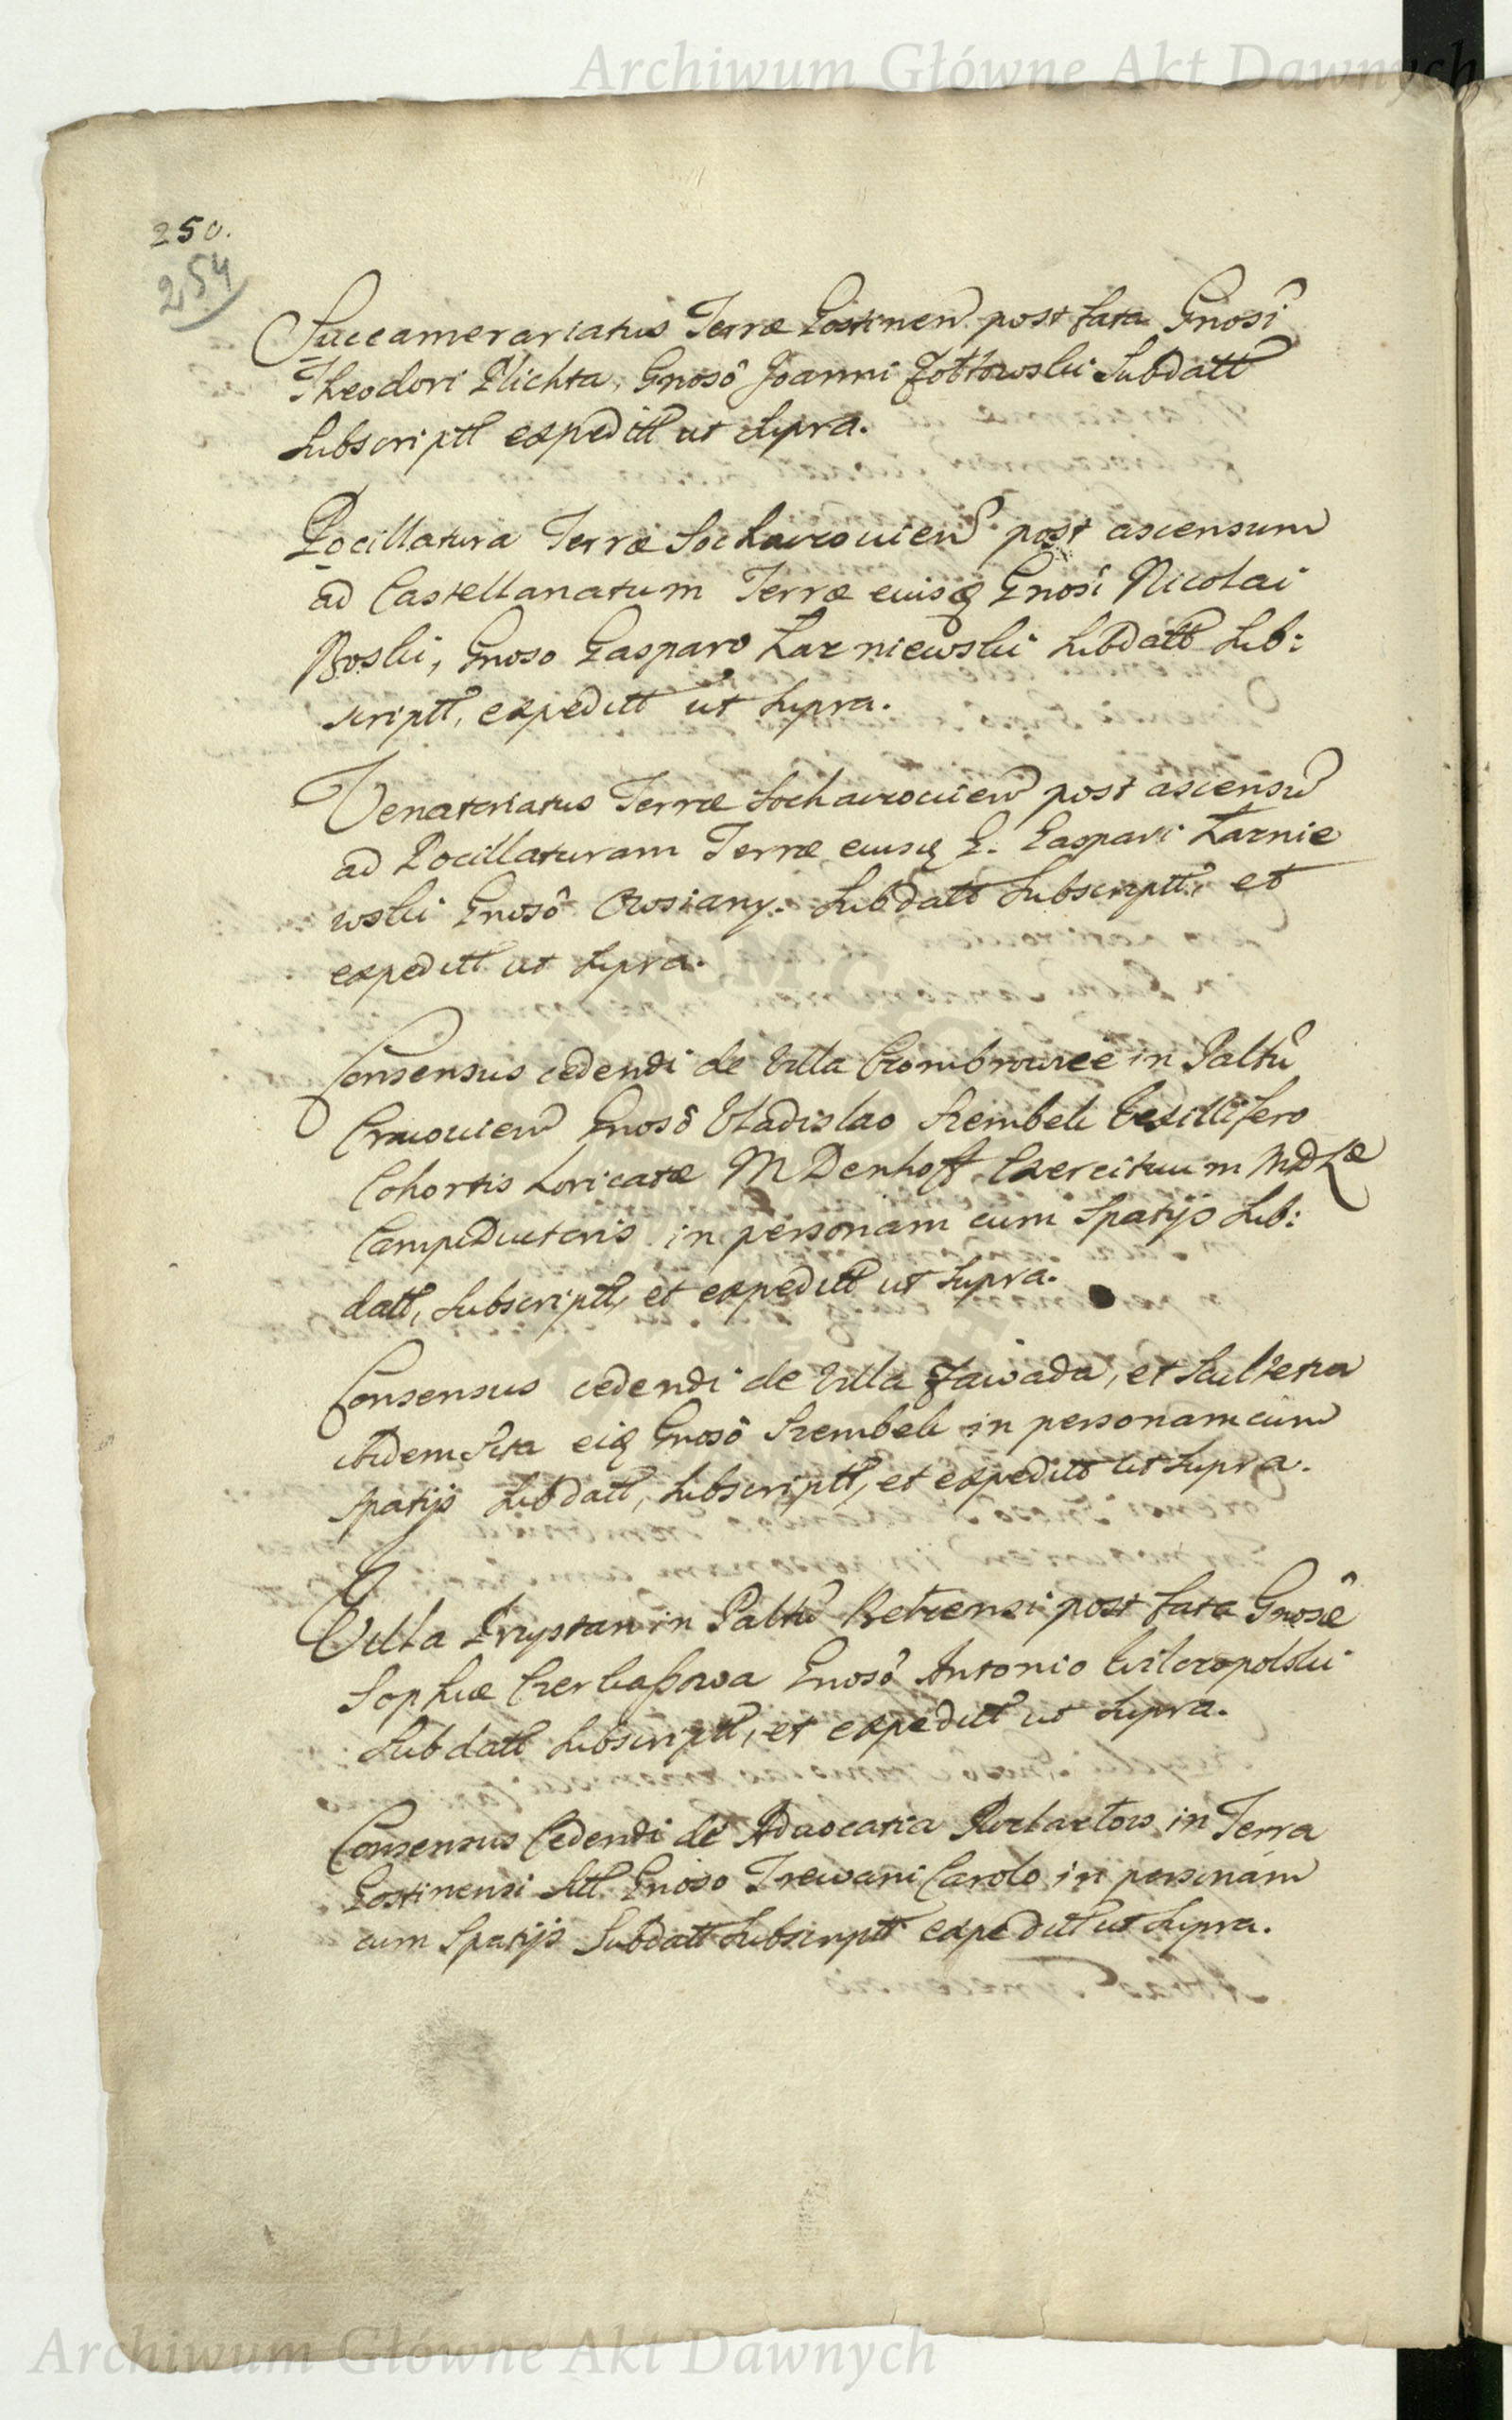 Archiwum Główne Akt Dawnych
250.
254
Succamerariatus Terræ Gostinen post fata Gnosi
Theodori Plichta, Gnosô Joanni Zołtowski Subdatt
Subscriptt expeditt ut supra.
Pocillatura Terræ Sochaczouien post ascensum
ad Castellanatum Terræ eiusq Gnosi Nicolai
Boski, Gnoso Gasparo Łazniewski Subdatt Sub:
scriptt, expeditt ut supra.
Venatoriatus Terræ Sochaczouien post ascensu
ad Pocillaturam Terræ eiusq G. Gaspari Łaznie
wski Gnosô Owsiany. Subdatt Subscriptt, et
expeditt ut supra.
Consensus cedendi de Villa in Palttu
Cracouien Gnosô Vladislao Szembek Vexillifero
Cohortis Loricatæ M Denhoff Exercituum MDLæ
CampiDuctoris in personam cum Spatijs Sub:
datt, Subscriptt, et expeditt ut supra.
Consensus cedendi de Villa Zawada, et Scultetia
ibidem Sita eiq Gnosô Szembek in personam cum
spatijs Subdatt, Subscriptt, et expeditt ut supra.
Villa in Palttu post fata Gnosæ
Sophiæ Gnosô Antonio Wielopolski
Subdatt Subscriptt, et expeditt ut supra.
Consensus Cedendi de Advocatia in Terra
Gostinensi Sitt Gnoso Trewani Carolo in personam
cum Spatijs Subdatt Subscriptt expeditt ut supra.
Archiwum Główne Akt Dawnych